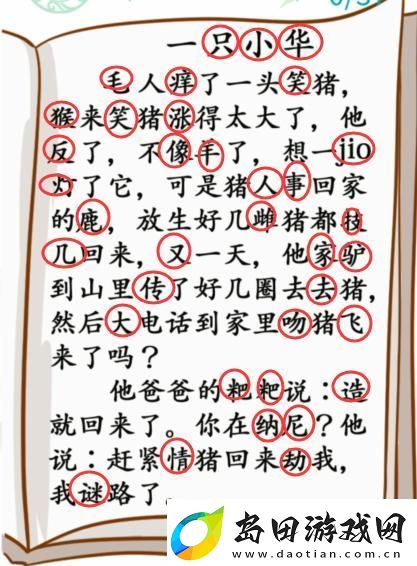 一只小华
毛人痒了一头笑猪，
猴来笑猪涨得太大了，他
反了，不像羊了，想一jio
灯了它，可是猪人事回家
的鹿，放生好几雌猪都技
几回来，又一天，他家驴
到山里传了好几圈去去猪，
然后大电话到家里吻猪飞
来了吗？
他爸爸的粑粑说：造
就回来了。你在纳尼？他
说：赶紧情猪回来劫我，
我谜路了。
岛田游戏网
www.daotian.com.cn